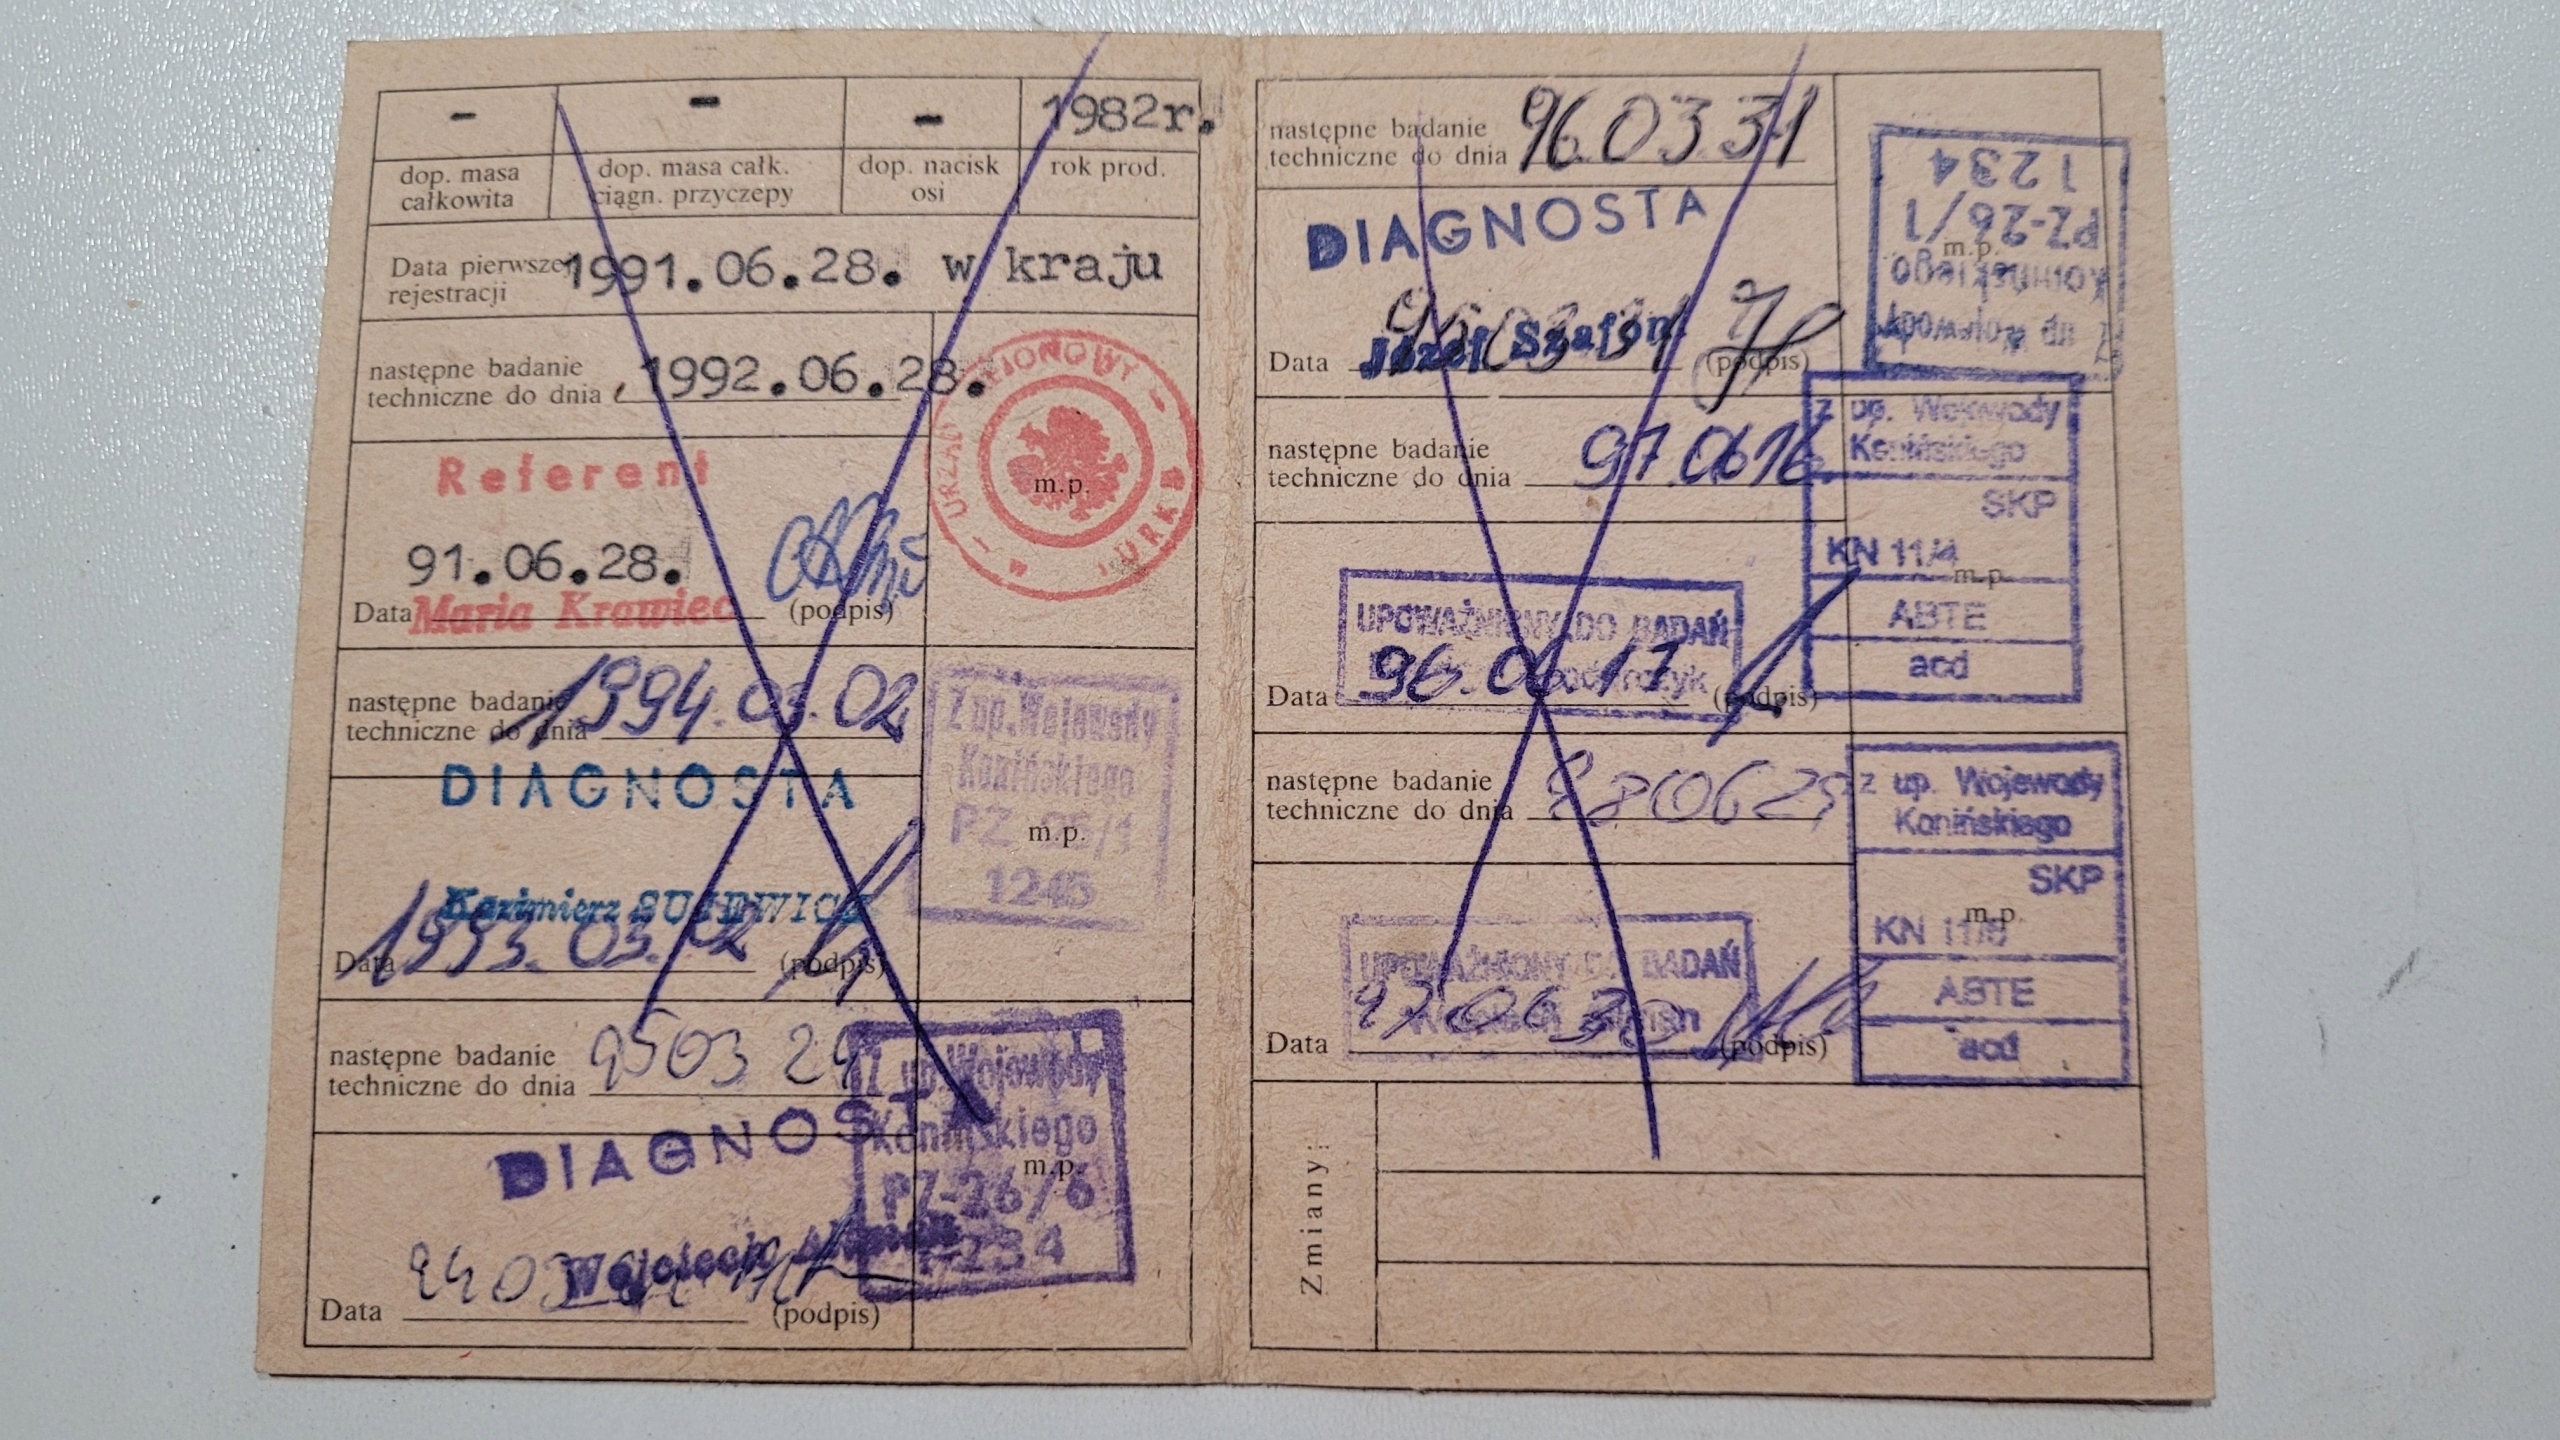 - - - 1982r.
dop. masa całkowita
dop. masa całk. ciągn. przyczepy
dop. nacisk osi
rok prod.
Data pierwszej rejestracji 1991.06.28. w kraju
następne badanie
techniczne do dnia 1992.06.28.
Referent
91.06.28.
Data Maria Krawiec (podpis)
m.p.
następne badanie
techniczne do dnia 1994.03.02
Z up. Wojewody
Konińskiego
1245
m.p.
DIAGNOSTA
Kazimierz
Data 1993.03.02 (podpis)
następne badanie
techniczne do dnia 9503 29
Z up. Wojewody
Konińskiego
PZ-26/6
1234
m.p.
DIAGNOSTA
Wojciech
Data (podpis)
następne badanie
techniczne do dnia 960331
Z up Wojewody
Konińskiego
PZ-26/1
1234
m.p.
DIAGNOSTA
Józef
Data (podpis)
następne badanie
techniczne do dnia 970616
z up. Wojewody
Konińskiego
SKP
KN 11/4
m.p.
ABTE
acd
UPOWAŻNIONY DO BADAŃ
Data 96.06.17 (podpis)
następne badanie
techniczne do dnia
z up. Wojewody
Konińskiego
SKP
KN
m.p.
ABTE
acd
UPOWAŻNIONY DO BADAŃ
Data 970630 (podpis)
Zmiany: